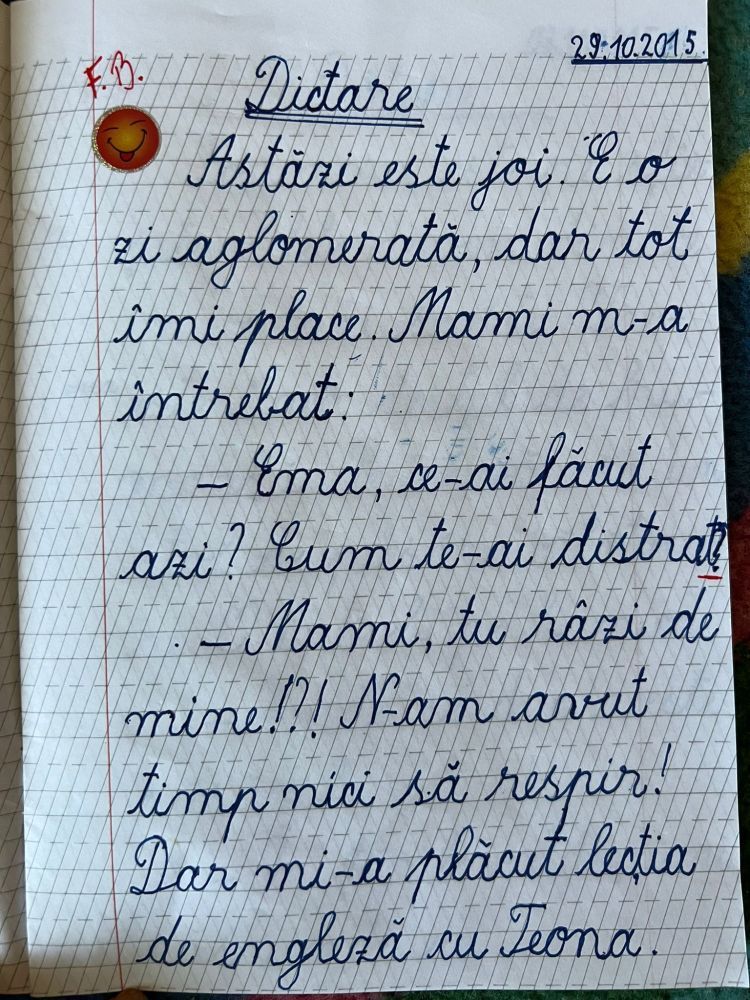 29.10.2015.
F.B.
Dictare
Astăzi este joi. E o
zi aglomerată, dar tot
îmi place. Mami m-a
întrebat:
– Ema, ce-ai făcut
azi? Cum te-ai distrat?
– Mami, tu râzi de
mine!?! N-am avut
timp nici să respir!
Dar mi-a plăcut lecția
de engleză cu Teona.